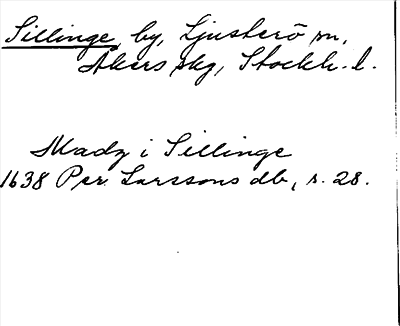 Sillinge, by, Ljusterö sn,
Åkers skg, Stockh. l.
Madz i Sillinge
1638 Per Larssons db, s. 28.